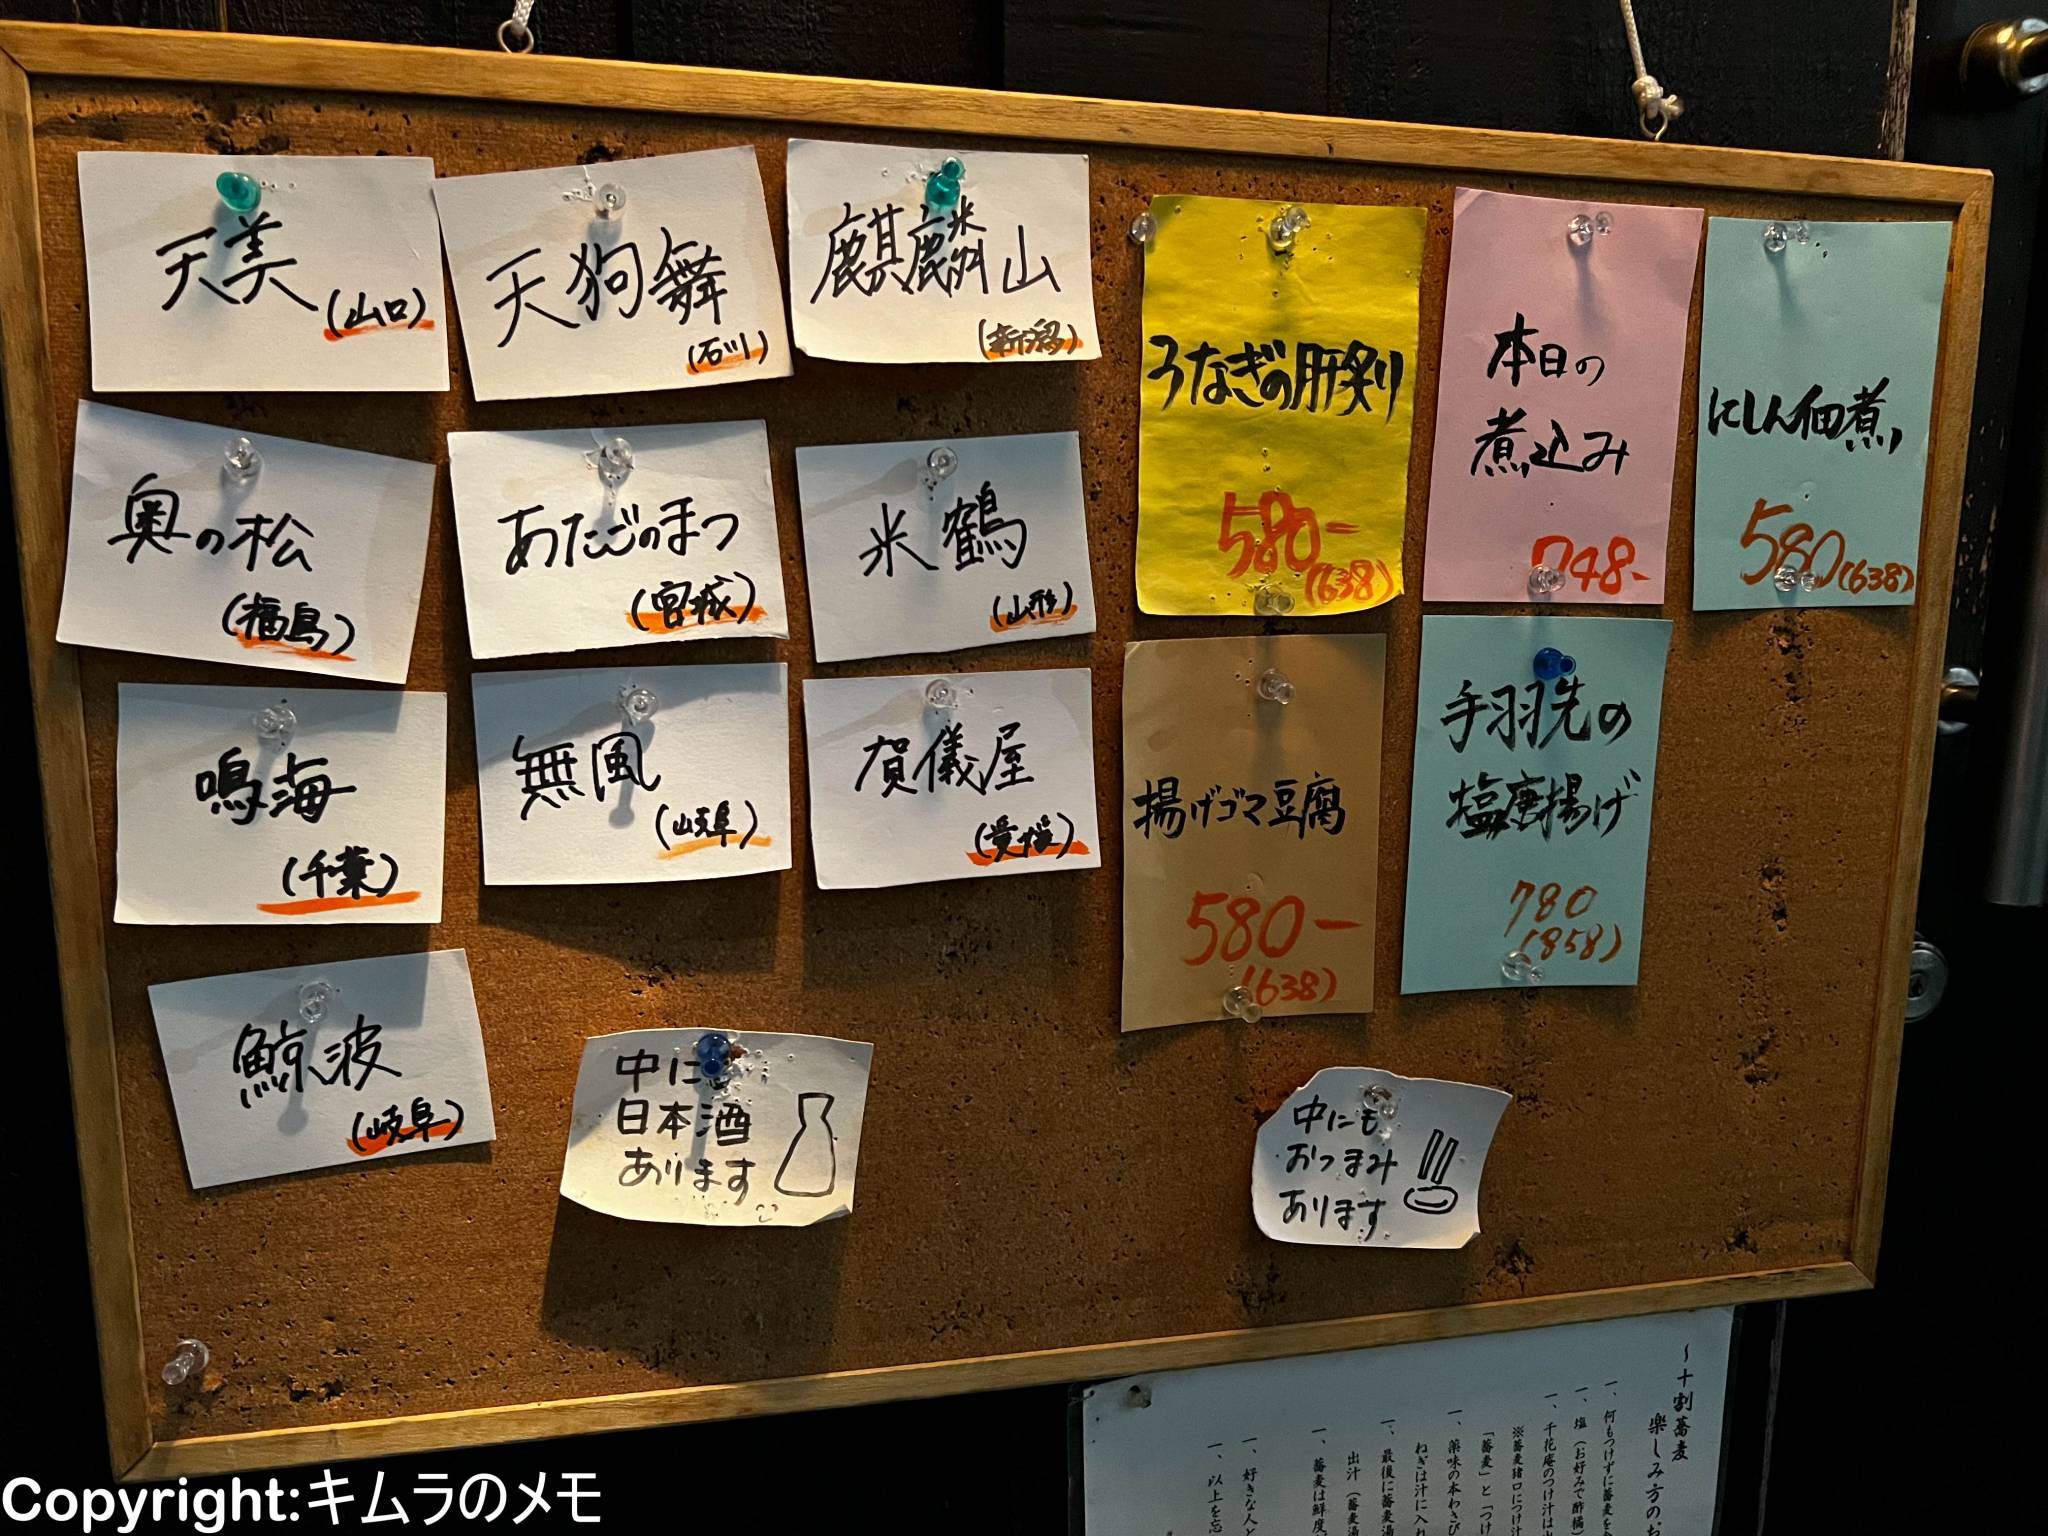 天美
(山口)
天狗舞
(石川)
麒麟山
(新潟)
奥の松
(福島)
あたごのまつ
(宮城)
米鶴
(山形)
鳴海
(千葉)
無風
(岐阜)
賀儀屋
(愛媛)
鯨波
(岐阜)
中に
日本酒
あります
うなぎの肝炙り
580-
(638)
本日の
煮込み
748-
にしん佃煮
580(638)
揚げゴマ豆腐
580-
(638)
手羽先の
塩唐揚げ
780
(858)
中にも
おつまみ
あります
～十割蕎麦
楽しみ方のお
一、何もつけずに蕎麦を
一、塩(お好みで酢橘)
一、千花庵のつけ汁は
※蕎麦猪口につけ汁
「蕎麦」と「つけ
一、薬味の本わさび
ねぎは汁に入れ
一、最後に蕎麦湯
出汁(蕎麦湯
一、蕎麦は鮮度
一、好きな人と
一、以上を忘
Copyright:キムラのメモ